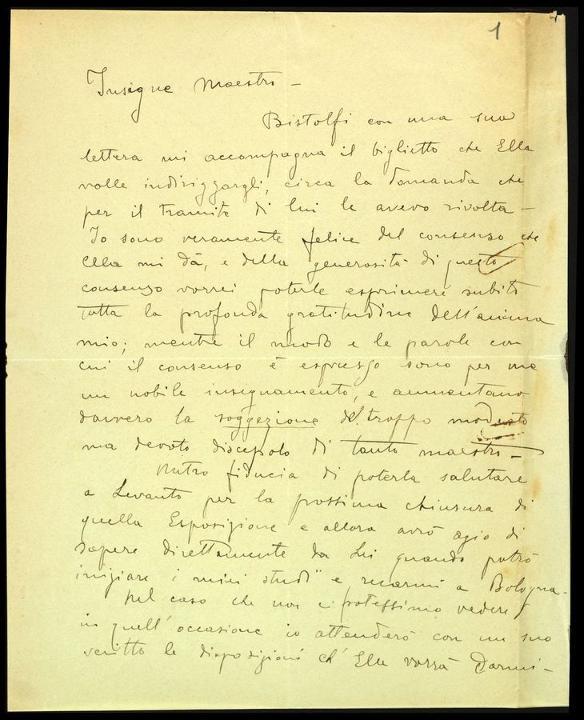 1
Insigne Maestro -
Bistolfi con una sua
lettera mi accompagna il biglietto che Ella
volle indirizzargli, circa la domanda che
per il tramite di lui le avevo rivolta -
Io sono veramente felice del consenso che
Ella mi dà, e della generosità di questo
consenso vorrei poterle esprimere subito
tutta la profonda gratitudine dell'animo
mio; mentre il modo e le parole con
cui il consenso è espresso sono per me
un nobile insegnamento, e aumentano
davvero la soggezione del troppo modesto
ma devoto discepolo di tanto maestro -
Nutro fiducia di poterla salutare
a Levanto per la prossima chiusura di
quella Esposizione e allora avrò agio di
sapere direttamente da Lei quando potrò
iniziare i miei studi e recarmi a Bologna.
Nel caso che non ci potessimo vedere
in quell'occasione io attenderò con un suo
scritto le disposizioni ch'Ella vorrà darmi -